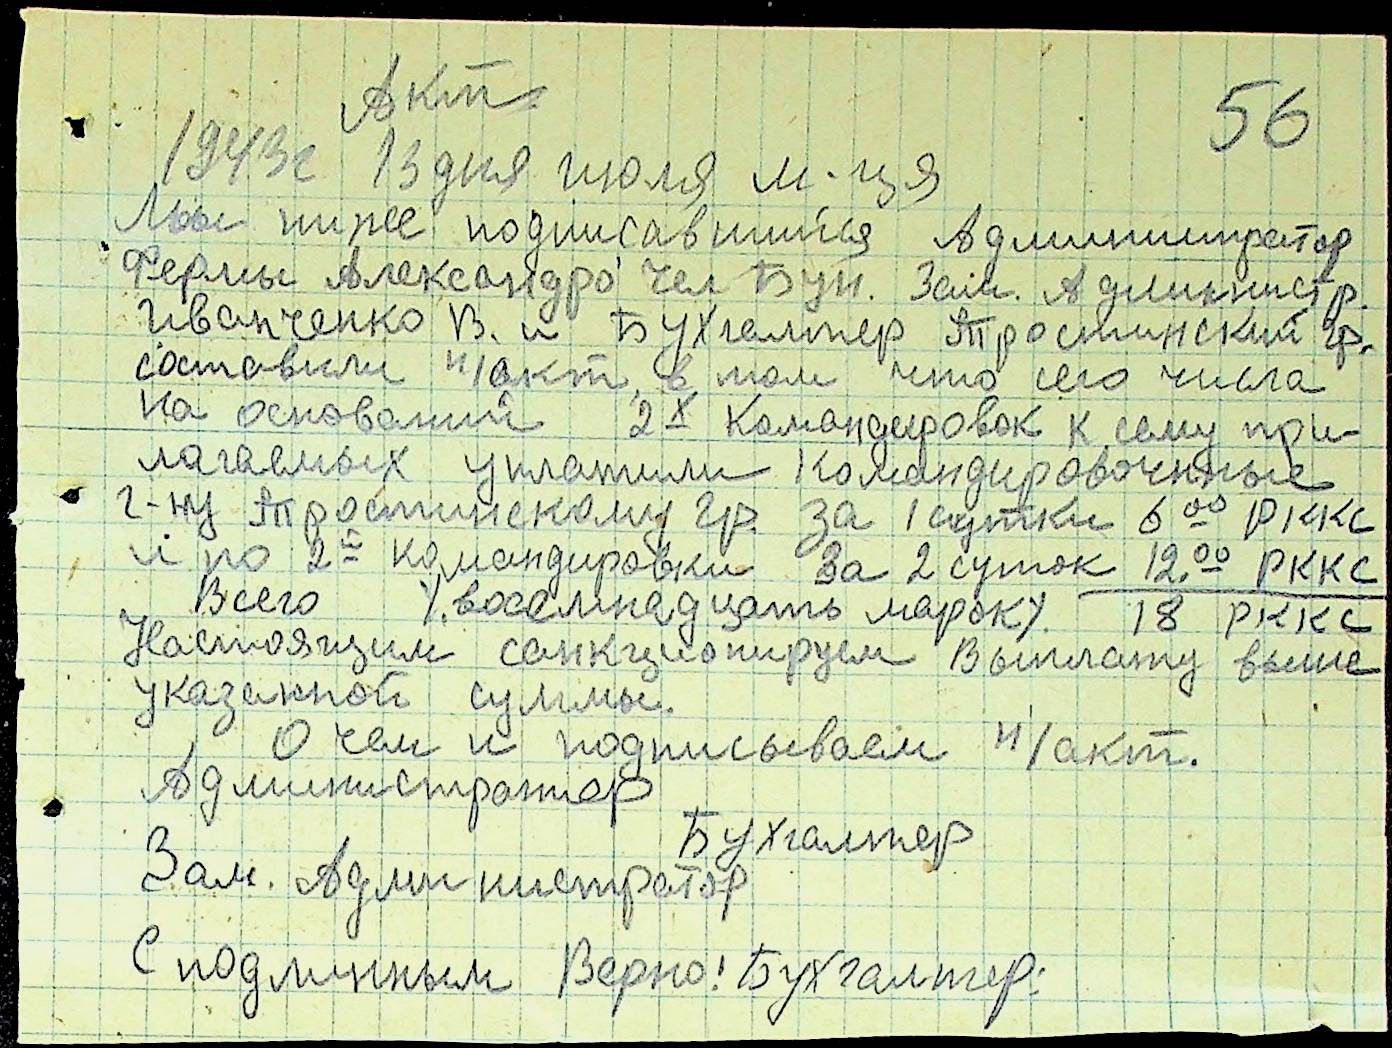 Акт
56
1943г 13 дня июля м-ця
Мы ниже подписавшийся Администратор
Фермы Александро Чел Бун. Зам. Администр.
Иванченко В. и Бухгалтер Тростинский Гр.
составили н/акт, в том что сего числа
на основании 2х командировок к сему при-
лагаемых уплатили командировочнные
г-ну Тростинскому Гр. за 1 сутки 6 00 РККС
и по 2й командировки За 2 суток 12.00 РККС
Всего /.восемнадцать марок/. 18 РККС
Настоящим санкционируем Выплату выше
указанной суммы.
О чем и подписываем н/акт.
Администратор
Бухгалтер
Зам. Администратор
С подлинным Верно! Бухгалтер: